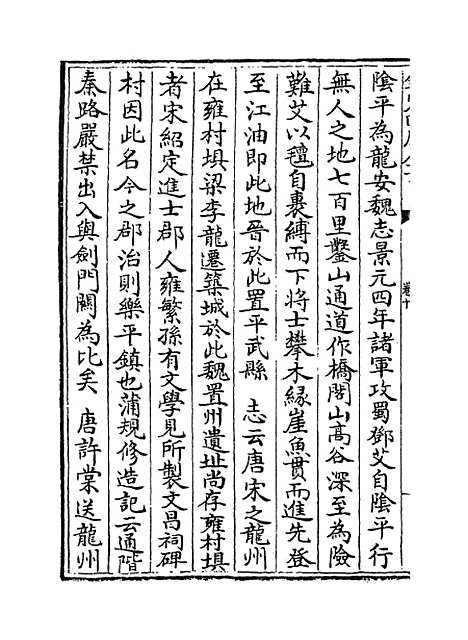 陰平為龍安魏志景元四年諸軍攻蜀鄧艾自陰平行
無人之地七百里鑿山通道作橋閣山高谷深至為險
難艾以氊自裹縛而下將士攀木緣崖魚貫而進先登
至江油即此地晉於此置平武縣　志云唐宋之龍州
在雍村垻梁李龍遷築城於此魏置州遺址尚存雍村垻
者宋紹定進士郡人雍繁孫有文學見所製文昌祠碑
村因此名今之郡治則樂平鎮也蒲規修造記云通階
秦路嚴禁出入與劍門關為比矣　唐許棠送龍州
卷十